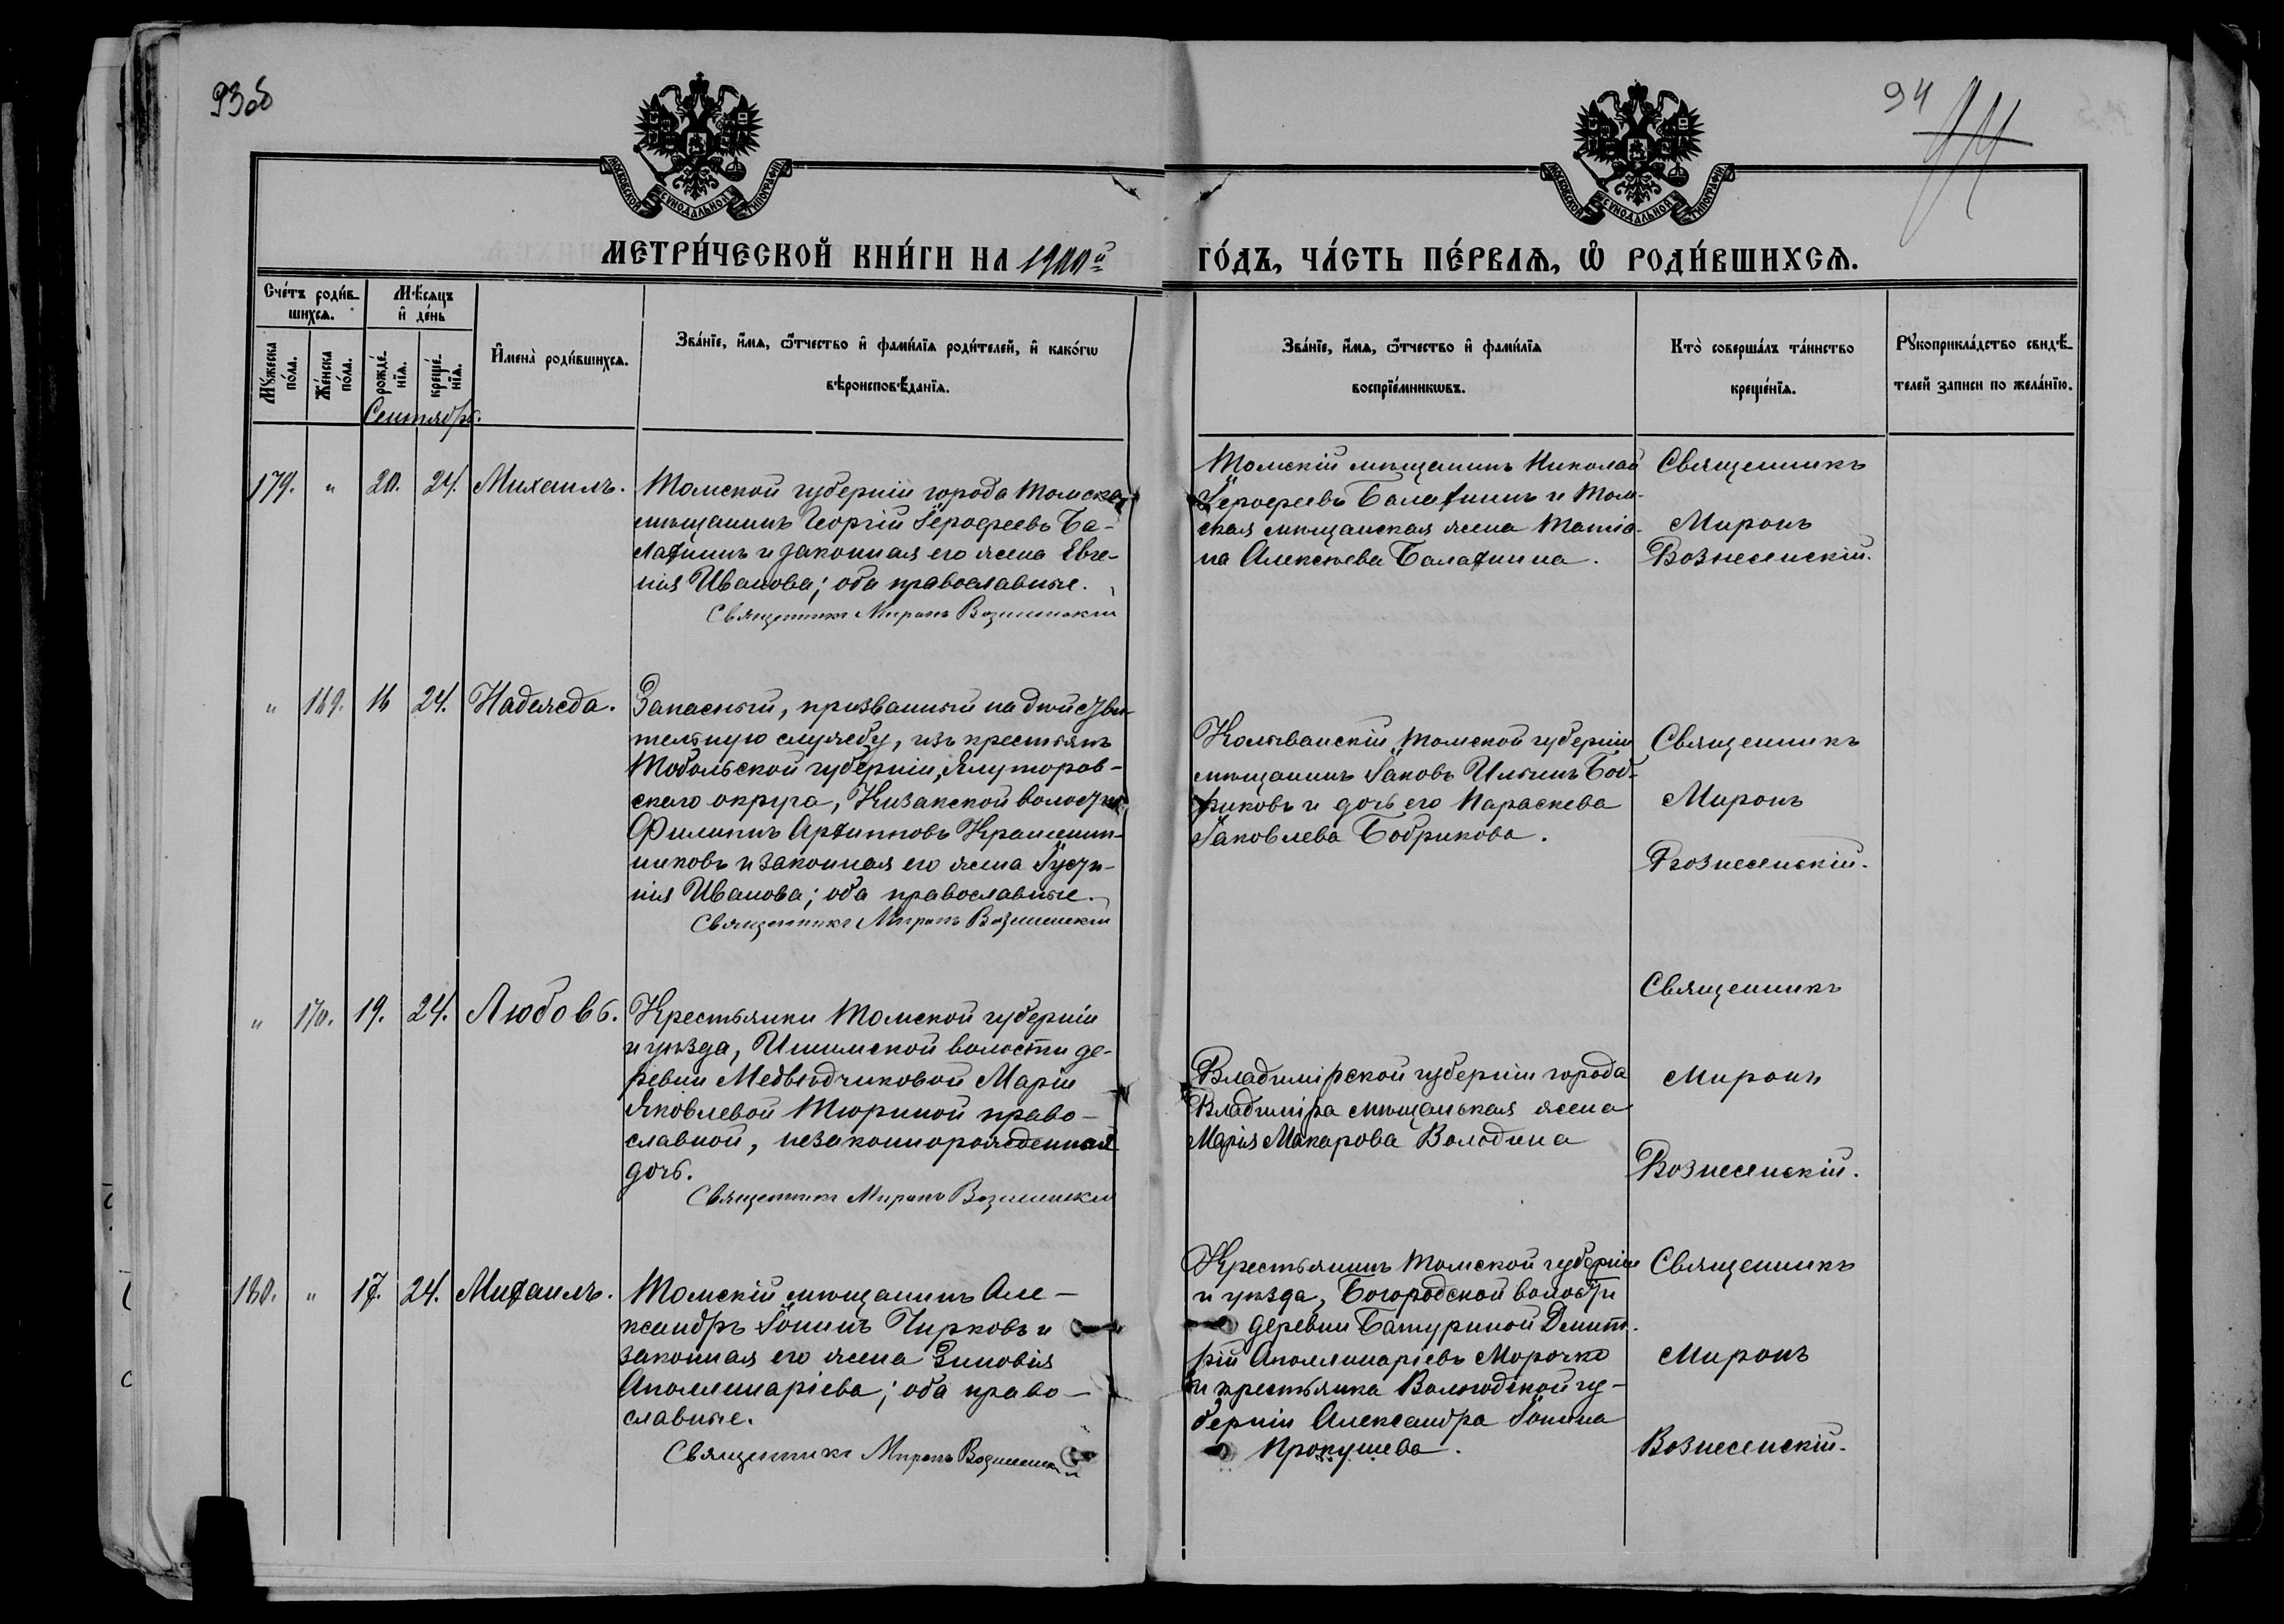 93об
94
МОСКОВСКОЙ СѴНОДАЛЬНОЙ ТИПОГРАФІИ
МОСКОВСКОЙ СѴНОДАЛЬНОЙ ТИПОГРАФІИ
МЕТРИ́ЧЕСКОЙ КНИ́ГИ НА 1900й
ГО́ДЪ, ЧА́СТЬ ПЕ́РВАѦ, Ѽ РОДИ́ВШИХСѦ.
Сче́тъ роди́в-
шихсѧ.
Мꙋжеска
по́ла.
Же́нска
по́ла.
Мѣ́сѧцъ
и҆ де́нь
рожде́-
нїѧ.
креще́-
нїѧ.
Сентябрь.
И҆мена̀ роди́вшихсѧ.
Зва́нїе, и҆́мѧ, ѻ҆́тчество и҆ фами́лїѧ роди́телей, и҆ како́гѡ
вѣроисповѣ́данїѧ.
Зва́нїе, и҆́мѧ, ѻ҆́тчество и҆ фами́лїѧ
воспрїе́мникѡвъ.
Кто̀ соверша́лъ та́инство
креще́нїѧ.
Рꙋкоприкла́дство свидѣ́-
телей записи по жела́нїю.
179.
"
20.
24.
Михаилъ.
Томской губерніи города Томска
мѣщанинъ Георгій Іерофеевъ Ба-
лахнинъ и законная его жена Евге-
нія Иванова; оба православные.
Священникъ Миронъ Вознесенскій
Томскій мѣщанинъ Николай
Іерофеевъ Балахнинъ и Том-
ская мѣщанская жена Татіа-
на Алексѣева Балахнина.
Священникъ
Миронъ
Вознесенскій.
"
169.
16
24.
Надежда.
Запасный, призванный на дѣйстви-
тельную службу, изъ крестьянъ
Тобольской губерніи, Ялуторов-
скаго округа, Кизакской волости
Филиппъ Архиповъ Крашенин-
никовъ и законная его жена Іусти-
нія Иванова; оба православные.
Священникъ Миронъ Вознесенскій
Колыванскій Томской губерніи
мѣщанинъ Іаковъ Ильинъ Боб-
риковъ и дочь его Параскева
Іаковлева Бобрикова.
Священникъ
Миронъ
Вознесенскій.
"
170.
19.
24.
Любовь.
Крестьянки Томской губерніи
и уѣзда, Ишимской волости де-
ревни Медвѣдчиковой Маріи
Яковлевой Тюриной право-
славной, незаконнорожденная
дочь.
Священникъ Миронъ Вознесенскій
Владимірской губерніи города
Владиміра мѣщанская жена
Марія Макарова Володина
Священникъ
Миронъ
Вознесенскій.
180.
"
17.
24.
Михаилъ.
Томскій мѣщанинъ Але-
ксандръ Іонинъ Чирковъ и
законная его жена Зиновія
Аполлинаріева; оба право-
славные.
Священникъ Миронъ Вознесенскій
Крестьянинъ Томской губерніи
и уѣзда, Богородской волости
деревни Батуриной Дмит-
рій Аполлинаріевъ Морочко
и крестьянка Вологодской гу-
берніи Александра Іонина
Прокушева.
Священникъ
Миронъ
Вознесенскій.